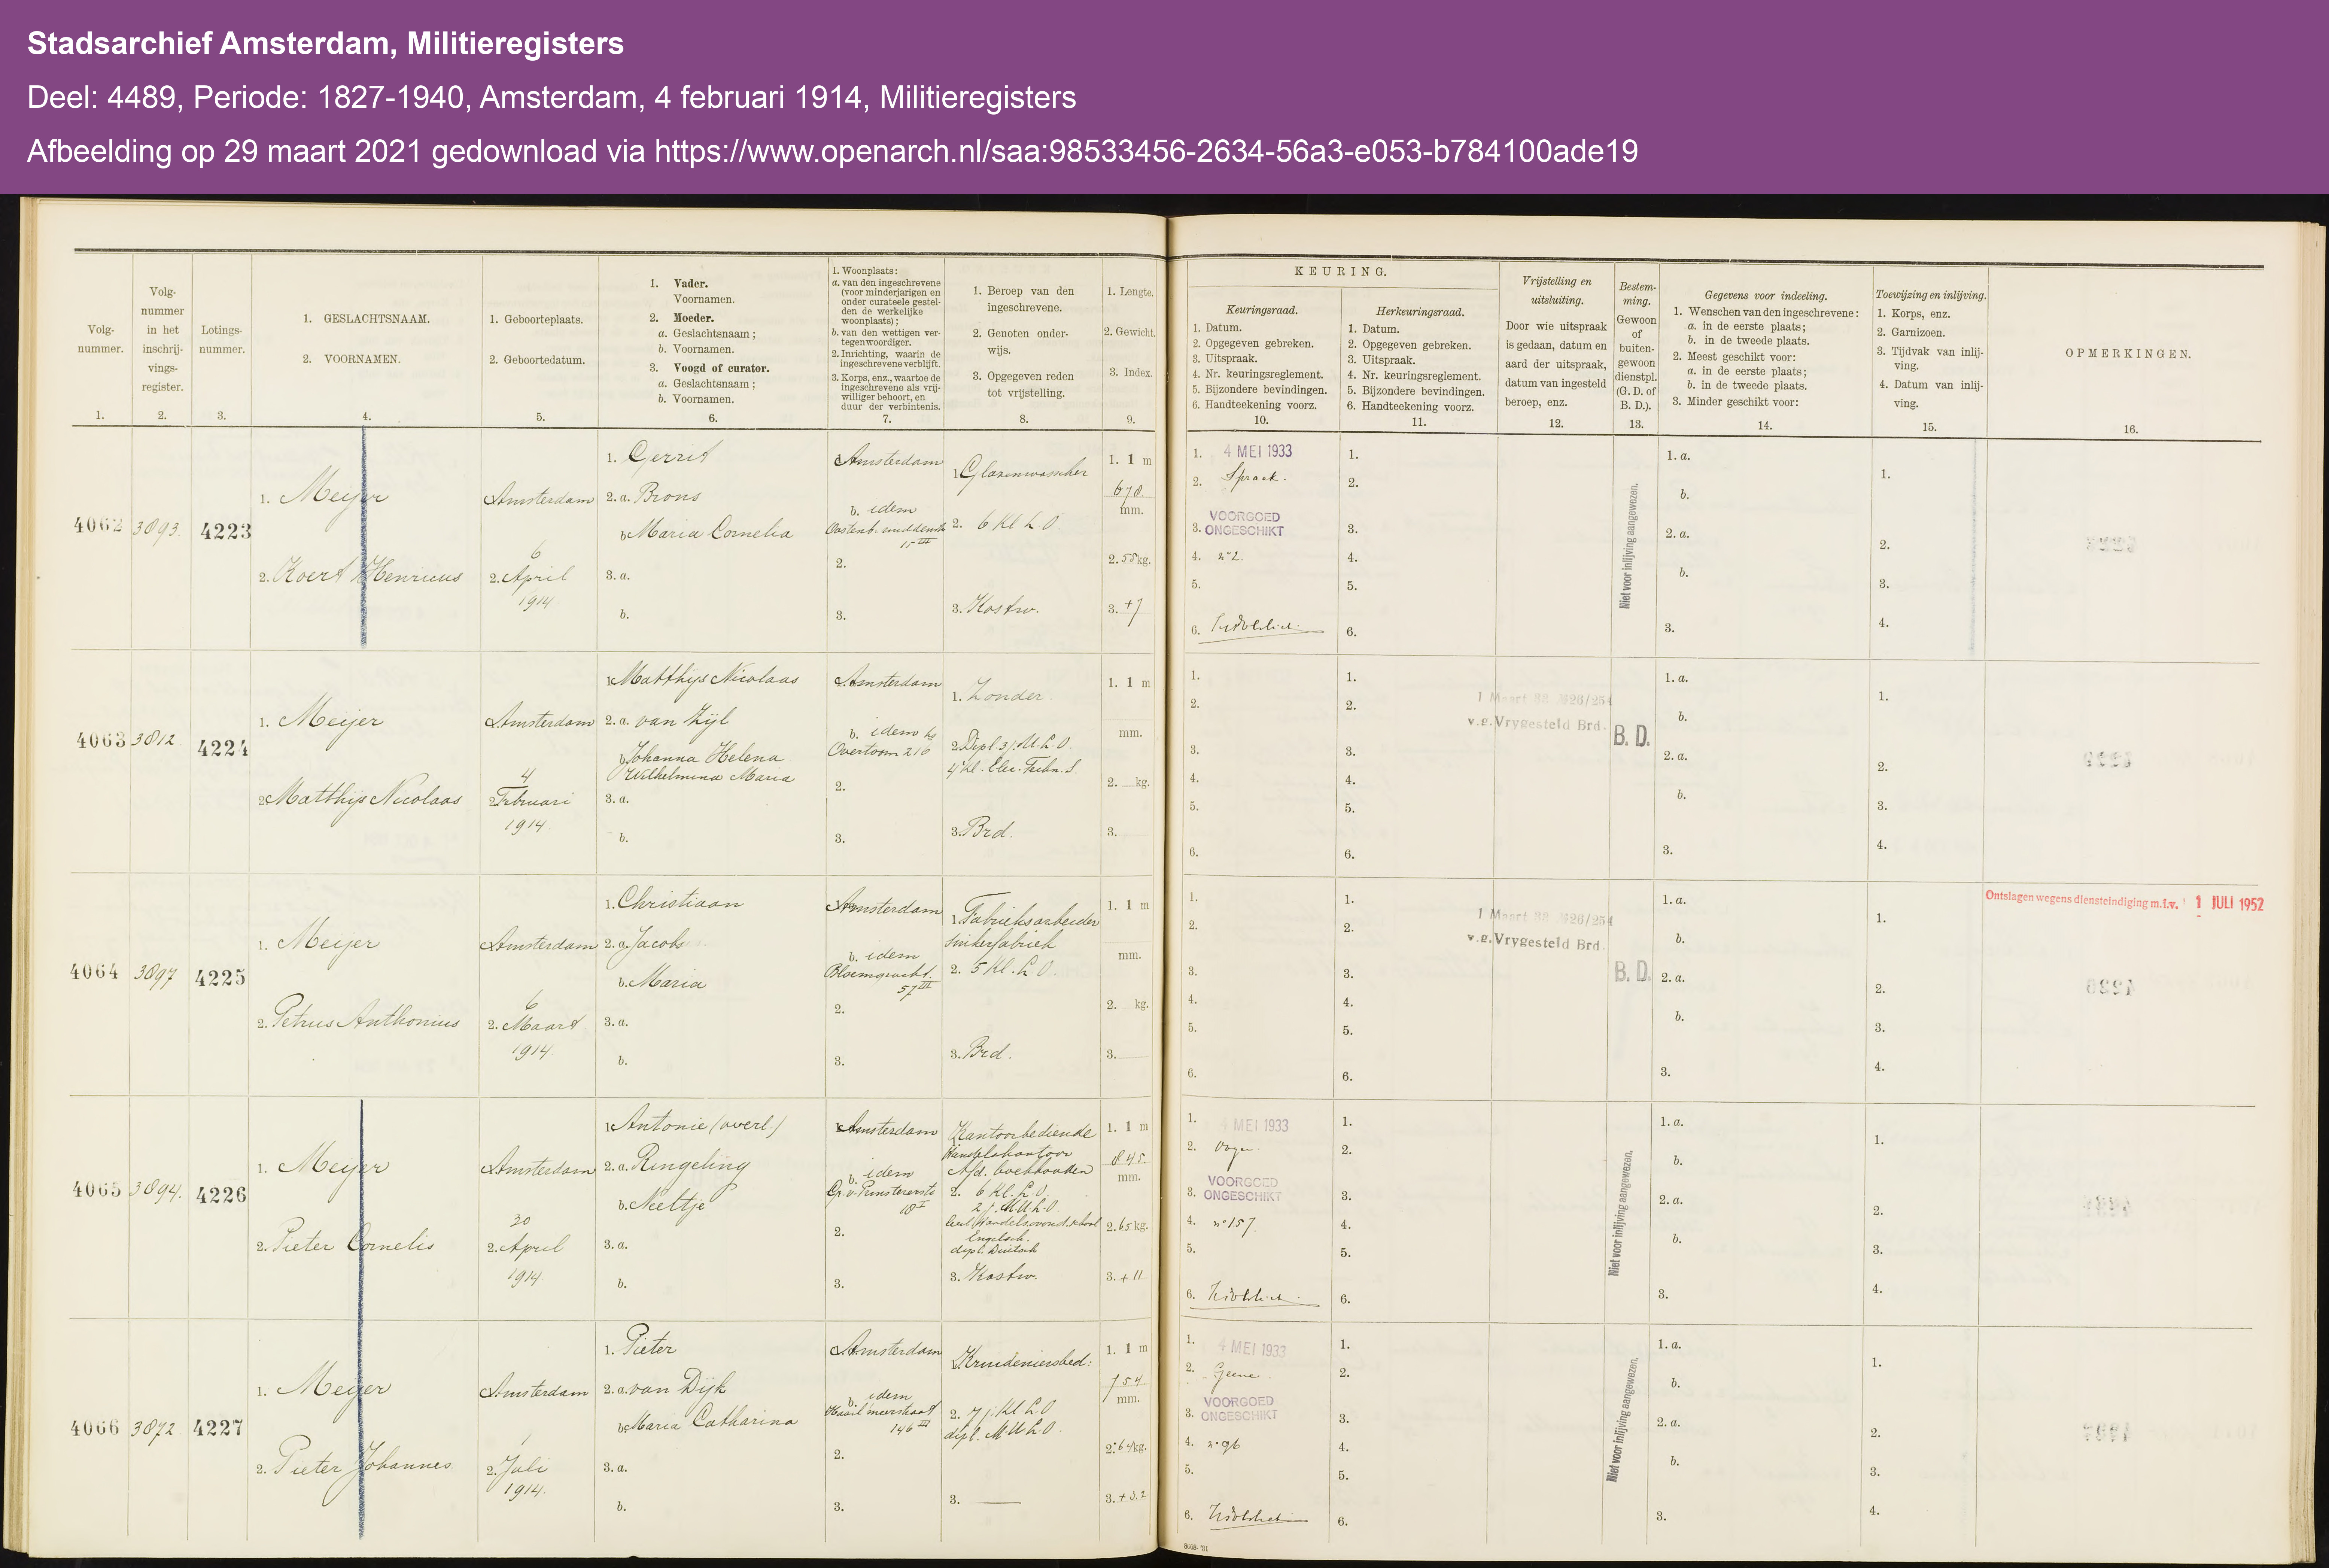 Stadsarchief Amsterdam, Militieregisters
Deel: 4489, Periode: 1827-1940, Amsterdam, 4 februari 1914, Militieregisters
Afbeelding op 29 maart 2021 gedownload via https://www.openarch.nl/saa:98533456-2634-56a3-e053-b784100ade19
Volg-
nummer.
1.
Volg-
nummer
in het
inschrij-
vings-
register.
2.
Lotings-
nummer.
3.
1. GESLACHTSNAAM.
2. VOORNAMEN.
4.
1. Geboorteplaats.
2. Geboortedatum.
5.
1. Vader.
Voornamen.
2. Moeder.
a. Geslachtsnaam;
b. Voornamen.
3. Voogd of curator.
a. Geslachtsnaam;
b. Voornamen.
6.
1. Woonplaats:
a. van den ingeschrevene
(voor minderjarigen en
onder curateele gestel-
den de werkelijke
woonplaats);
b. van den wettigen ver-
tegenwoordiger.
2. Inrichting, waarin de
ingeschrevene verblijft.
3. Korps, enz., waartoe de
ingeschrevene als vrij-
williger behoort, en
duur der verbintenis.
7.
1. Beroep van den
ingeschrevene.
2. Genoten onder-
wijs.
3. Opgegeven reden
tot vrijstelling.
8.
1. Lengte.
2. Gewicht.
3. Index.
9.
KEURING.
Keuringsraad.
1. Datum.
2. Opgegeven gebreken.
3. Uitspraak.
4. Nr. keuringsreglement.
5. Bijzondere bevindingen.
6. Handteekening voorz.
10.
Herkeuringsraad.
1. Datum.
2. Opgegeven gebreken.
3. Uitspraak.
4. Nr. keuringsreglement.
5. Bijzondere bevindingen.
6. Handteekening voorz.
11.
Vrijstelling en
uitsluiting.
Door wie uitspraak
is gedaan, datum en
aard der uitspraak,
datum van ingesteld
beroep, enz.
12.
Bestem-
ming.
Gewoon
of
buiten-
gewoon
dienstpl.
(G. D. of
B. D.).
13.
Gegevens voor indeeling.
1. Wenschen van den ingeschrevene:
a. in de eerste plaats;
b. in de tweede plaats.
2. Meest geschikt voor:
a. in de eerste plaats;
b. in de tweede plaats.
3. Minder geschikt voor:
14.
Toewijzing en inlijving.
1. Korps, enz.
2. Garnizoen.
3. Tijdvak van inlij-
ving.
4. Datum van inlij-
ving.
15.
OPMERKINGEN.
16.
4062
3893.
4223
1. Meijer
2. Koert Henricus
Amsterdam
6
2. April
1914
1. Gerrit
2. a. Brons
b. Maria Cornelia
3. a.
b.
Amsterdam
b. idem
15 III
2.
3.
1 Glazenwasscher
2. 6 Kl L.O.
3. Kostw.
1. 1 m
678
mm.
2. 55 kg.
3. +7
1. 4 MEI 1933
2. Spraak.
3. VOORGOED
ONGESCHIKT
4. no 2
5.
6.
1.
2.
3.
4.
5.
6.
Niet voor inlijving aangewezen.
1. a.
b.
2. a.
b.
3.
1.
2.
3.
4.
4063
3812
4224
1. Meijer
2. Matthijs Nicolaas
Amsterdam
4
2. Februari
1914.
1. Matthijs Nicolaas
2. a. van Zijl
b. Johanna Helena
Wilhelmina Maria
3. a.
b.
Amsterdam
b. idem hs
Overtoom 216
2.
3.
1. Zonder.
2. Dipl 3 j. M.U.L.O.
4e Kl. Elec. Techn. S.
3. Brd.
1. 1 m
mm.
2. kg.
3.
1.
2.
3.
4.
5.
6.
1.
2.
3.
4.
5.
6.
1 Maart 33 №26/254
v.g. Vrygesteld Brd.
B. D.
1. a.
b.
2. a.
b.
3.
1.
2.
3.
4.
4064
3897
4225
1. Meijer
2. Petrus Anthonius
Amsterdam
6
2. Maart
1914
1. Christiaan
2. a. Jacobs
b. Maria
3. a.
b.
Amsterdam
b. idem
Bloemgracht.
57 III
2.
3.
1. Fabrieksarbeider
Suikerfabriek
2. 5 Kl. L.O.
3. Brd.
1. 1 m
mm.
2. kg.
3.
1.
2.
3.
4.
5.
6.
1.
2.
3.
4.
5.
6.
1 Maart 33 №26/254
v.g. Vrygesteld Brd.
B. D.
1. a.
b.
2. a.
b.
3.
1.
2.
3.
4.
Ontslagen wegens diensteindiging m.i.v. 1 JULI 1952
4065
3894.
4226
1. Meijer
2. Pieter Cornelis
Amsterdam
30
2. April
1914.
1. Antonie (overl.)
2. a. Ringeling
b. Neeltje
3. a.
b.
Amsterdam
b. idem
18 I
2.
3.
Kantoorbediende
Handelskantoor
Afd. boekhouden
2. 6 Kl. L.O.
2 j. M.U.L.O.
Engelsch.
dipl. Duitsch
3. Kostw.
1. 1 m
845
mm.
2. 65 kg.
3. + 11
1. 4 MEI 1933
2. Oogen
3. VOORGOED
ONGESCHIKT
4. no 157.
5.
6.
1.
2.
3.
4.
5.
6.
Niet voor inlijving aangewezen.
1. a.
b.
2. a.
b.
3.
1.
2.
3.
4.
4066
3872
4227
1. Meijer
2. Pieter Johannes
Amsterdam
1
2. Juli
1914.
1. Pieter
2. a. van Dijk
b. Maria Catharina
3. a.
b.
Amsterdam
b. idem
146 III
2.
3.
1. Kruideniersbed:
2. 7 j. Kl L.O
dipl. M.U.L.O.
3.
1. 1 m
754
mm.
2. 64 kg.
3. + 3.2
1. 4 MEI 1933
2. Geene
3. VOORGOED
ONGESCHIKT
4. no 96
5.
6.
1.
2.
3.
4.
5.
6.
Niet voor inlijving aangewezen.
1. a.
b.
2. a.
b.
3.
1.
2.
3.
4.
8668-'31